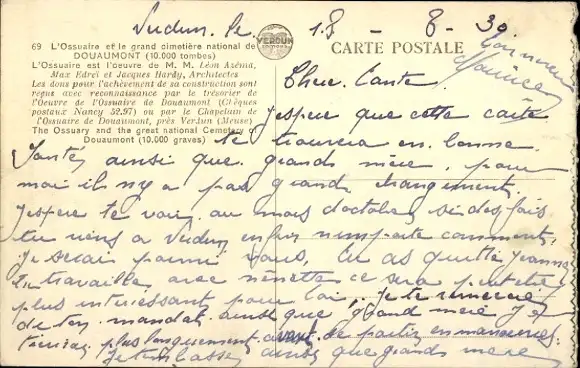 Verdun le 18 - 8 - 30.
VERDUN
69 L'Ossuaire et le grand cimetière national de
DOUAUMONT (10.000 tombes)
L'Ossuaire est l'œuvre de M. M. Léon Azéma,
Max Edreï et Jacques Hardy, Architectes
Les dons pour l'achèvement de sa construction sont
reçus avec reconnaissance par le trésorier de
l'Oeuvre de l'Ossuaire de Douaumont (Chèques
postaux Nancy 52.97) ou par le Chapelain de
l'Ossuaire de Douaumont, près Verdun (Meuse)
The Ossuary and the great national Cemetery of
Douaumont (10.000 graves)
CARTE POSTALE
Ton neveu
Maurice
Chere Tante
J'espere que cette carte
te trouvera en bonne
Santé ainsi que grands mère, pour
moi il n'y a pas grands changement.
J'espere te voir au mois d'octobre, si des fois
tu viens a Verdun enfin n'importe comment,
je serais parmi vous, tu as quitté Jeanne
tu travailles avec nénette ce sera peut être
plus interessant pour toi, je te remercie
de ton mandat ainsi que grand mère je
t'écrirai plus longuement avant de partir en manœuvres.
Je t'embrasse ainsi que grands mère